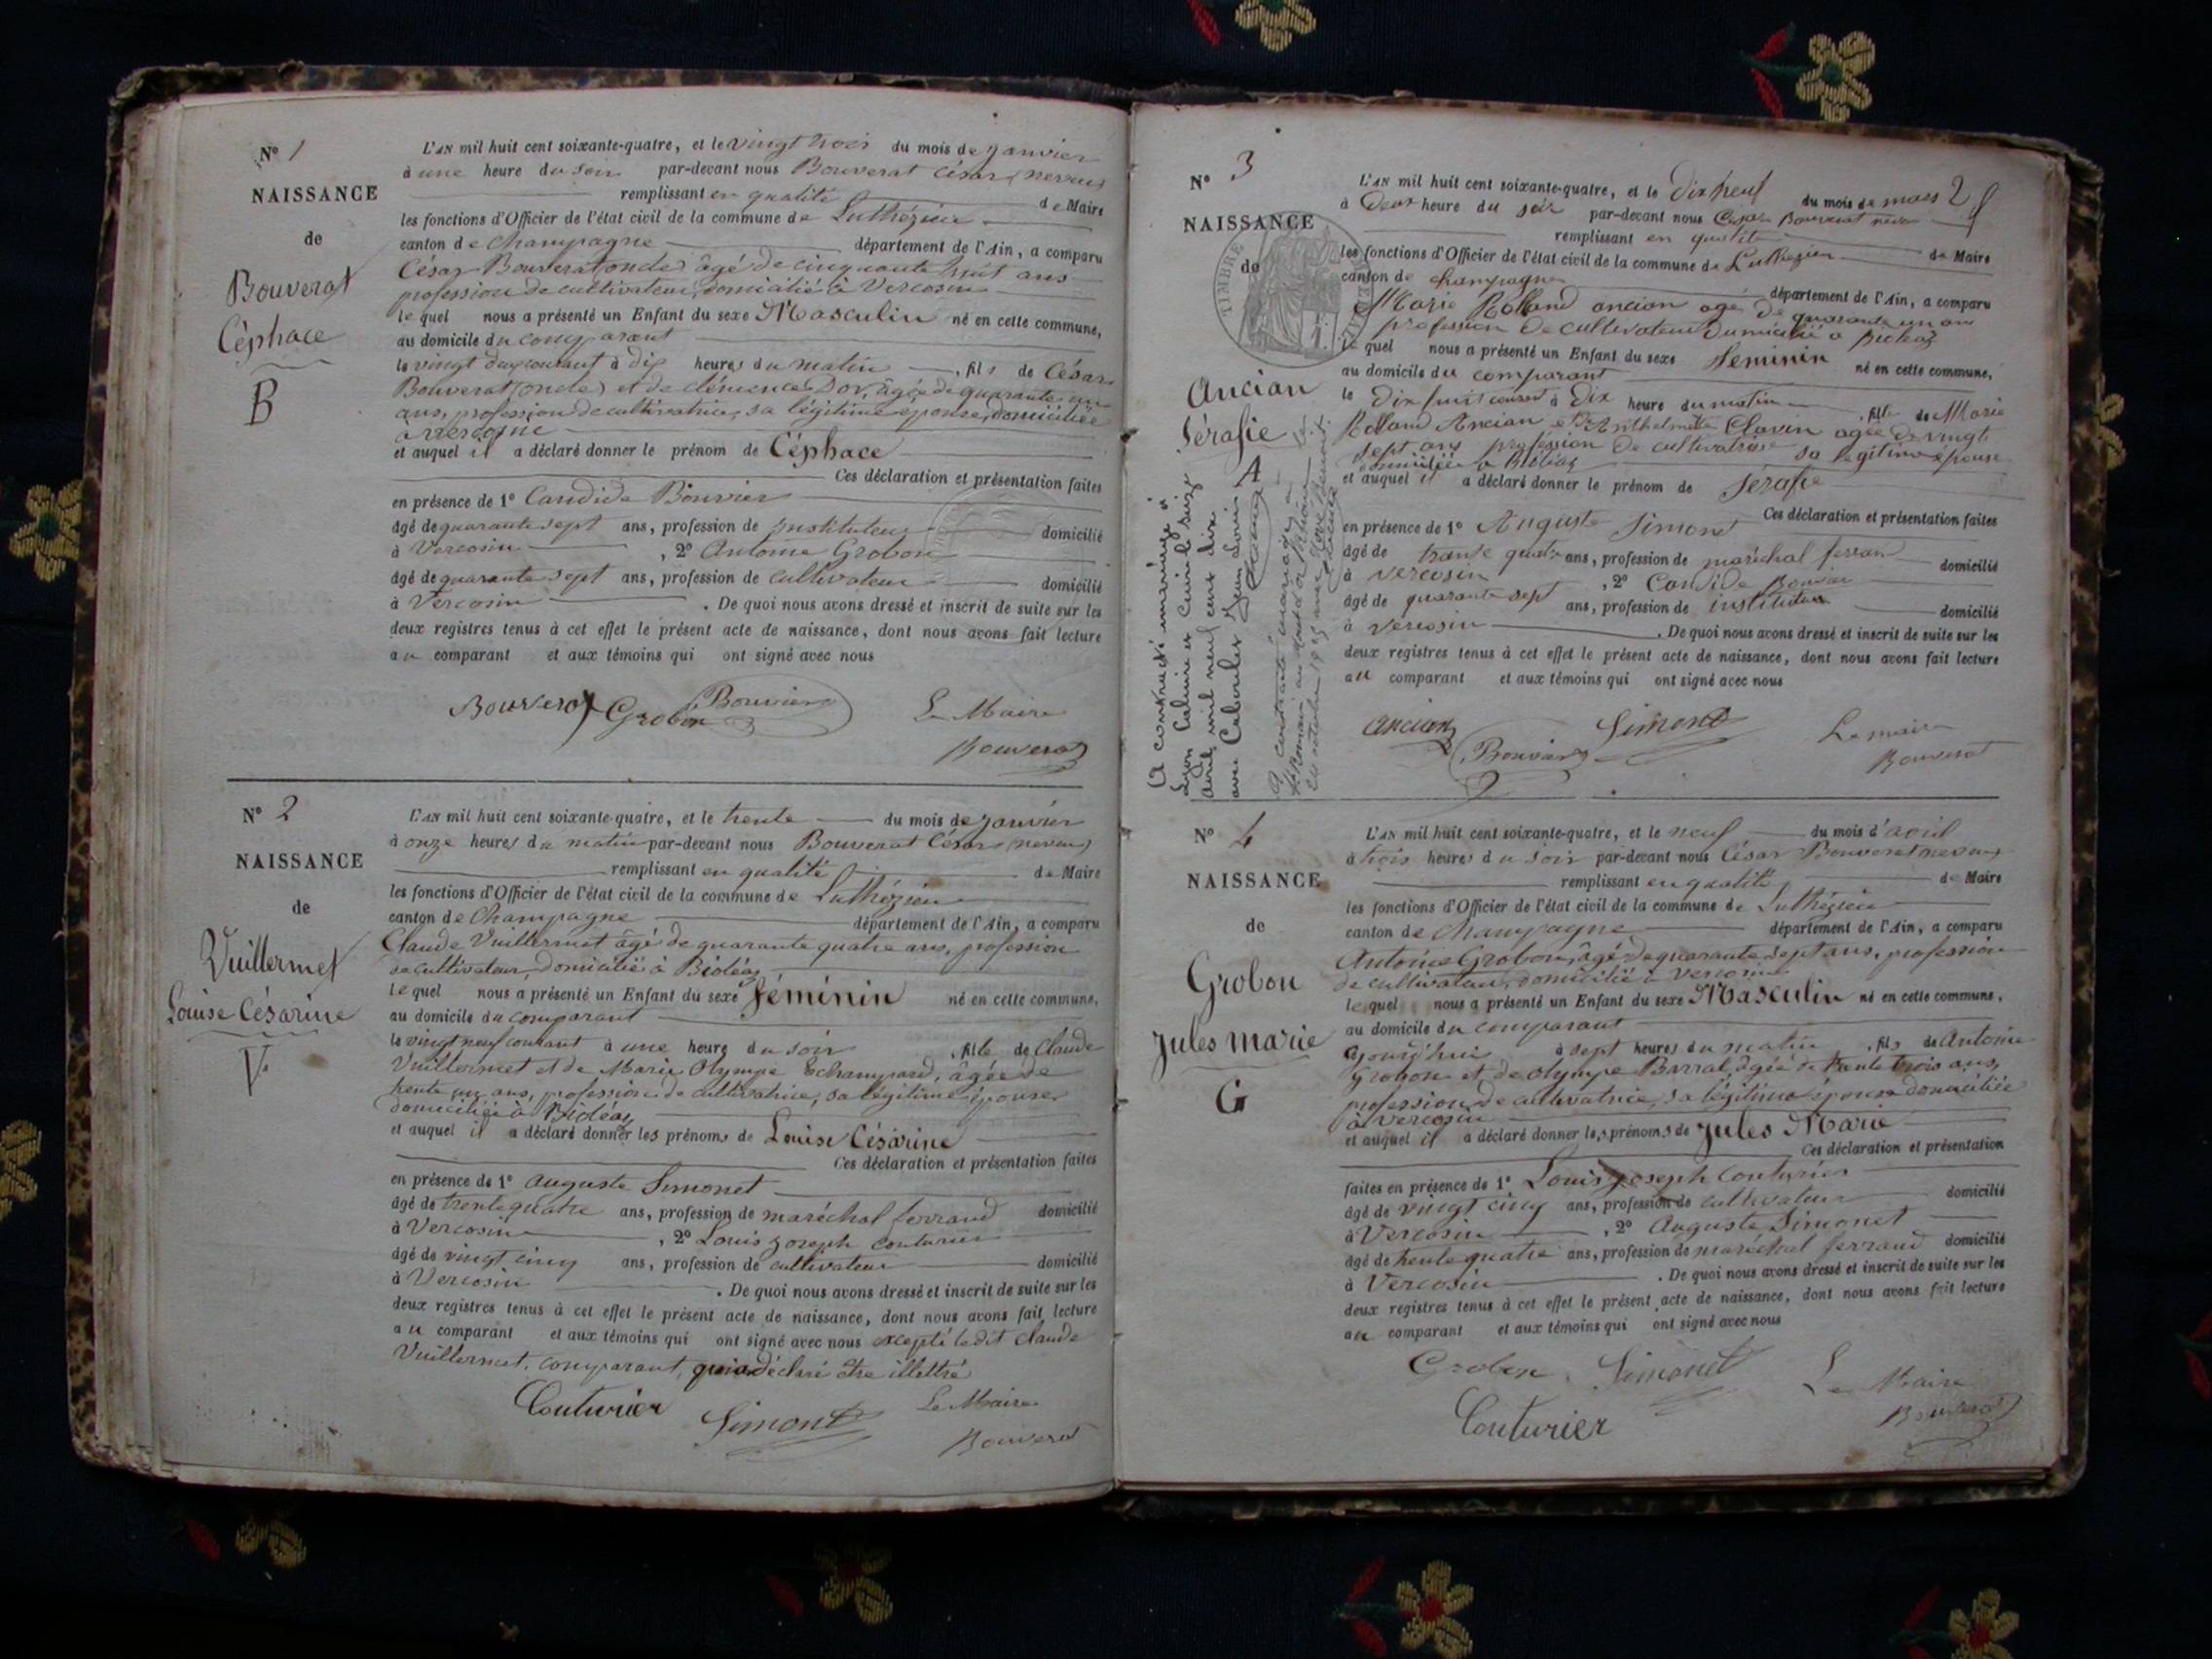 N° 1
NAISSANCE
de
Bouverat
Céphace
B
L'AN mil huit cent soixante-quatre, et le vingt trois du mois de janvier
à une heure du soir par-devant nous Bouverat César (neveu)
remplissant en qualité de Maire
les fonctions d'Officier de l'état civil de la commune de Luthézieu
canton de Champagne département de l'Ain, a comparu
César Bouverat (oncle) âgé de cinquante huit ans
profession de cultivateur, domicilié à Vercosin
lequel nous a présenté un Enfant du sexe Masculin né en cette commune,
au domicile du comparant
le vingt deux courant à dix heures du matin , fils de César
Bouverat (oncle) et de clémence Dor, âgée de quarante un
ans, profession de cultivatrice, sa légitime épouse, domiciliée
à Vercosin
et auquel il a déclaré donner le prénom de Céphace
Ces déclaration et présentation faites
en présence de 1° Candide Bouvier
âgé de quarante sept ans, profession de instituteur domicilié
à Vercosin , 2° Antoine Grobon
âgé de quarante sept ans, profession de cultivateur domicilié
à Vercosin . De quoi nous avons dressé et inscrit de suite sur les
deux registres tenus à cet effet le présent acte de naissance, dont nous avons fait lecture
au comparant et aux témoins qui ont signé avec nous
Bouverat Grobon Bouvier Le Maire
Bouverat
N° 2
NAISSANCE
de
Vuillermet
Louise Césarine
V.
L'AN mil huit cent soixante-quatre, et le trente du mois de janvier
à onze heures du matin par-devant nous Bouverat César (neveu)
remplissant en qualité de Maire
les fonctions d'Officier de l'état civil de la commune de Luthézieu
canton de Champagne département de l'Ain, a comparu
Claude Vuillermet âgé de quarante quatre ans, profession
de cultivateur, domicilié à Bioléaz
lequel nous a présenté un Enfant du sexe féminin né en cette commune,
au domicile du comparant
le vingt neuf courant à une heure du soir , fille de Claude
Vuillermet et de Marie Olympe Echampard, âgée de
trente ans, profession de cultivatrice, sa légitime épouse
domiciliée à Bioléaz
et auquel il a déclaré donner les prénoms de Louise Césarine
Ces déclaration et présentation faites
en présence de 1° Auguste Simonet
âgé de trente quatre ans, profession de maréchal ferrand domicilié
à Vercosin , 2° Louis Joseph Couturier
âgé de vingt cinq ans, profession de cultivateur domicilié
à Vercosin . De quoi nous avons dressé et inscrit de suite sur les
deux registres tenus à cet effet le présent acte de naissance, dont nous avons fait lecture
au comparant et aux témoins qui ont signé avec nous excepté ledit Claude
Vuillermet, comparant, qui a déclaré être illettré
Couturier Simonet Le Maire
Bouverat
N° 3
NAISSANCE
de
TIMBRE
Ancian
Sérafie
A
A contracté mariage à
avril mil neuf cent dix
L'AN mil huit cent soixante-quatre, et le dix neuf du mois de mars 2
à Deux heure du soir par-devant nous César Bouverat neveu
remplissant en qualité de Maire
les fonctions d'Officier de l'état civil de la commune de Luthezieu
canton de Champagne département de l'Ain, a comparu
Marie Rolland ancian agé de quarante un an
profession de cultivateur domicilié a Bioléaz
lequel nous a présenté un Enfant du sexe feminin né en cette commune,
au domicile du comparant
le Dix huit courant à Dix heure du matin , fille de Marie
Rolland Ancian et Anthelmette Clavin agée de vingt
sept ans profession de cultivatrice sa legitime épouse
domiciliée a Bioléaz
et auquel il a déclaré donner le prénom de Sérafie
Ces déclaration et présentation faites
en présence de 1° Auguste Simonet
âgé de trante quatre ans, profession de maréchal ferran domicilié
à Vercosin , 2° Candide Bouvier
âgé de quarante sept ans, profession de instituteur domicilié
à Vercosin . De quoi nous avons dressé et inscrit de suite sur les
deux registres tenus à cet effet le présent acte de naissance, dont nous avons fait lecture
au comparant et aux témoins qui ont signé avec nous
Ancian Bouvier Simonet Le maire
Bouverat
N° 4
NAISSANCE
de
Grobon
Jules Marie
G
L'AN mil huit cent soixante-quatre, et le neuf du mois d'avril
à trois heures du soir par-devant nous César Bouverat neveu
remplissant en qualité de Maire
les fonctions d'Officier de l'état civil de la commune de Luthézieu
canton de Champagne département de l'Ain, a comparu
Antoine Grobon, âgé de quarante sept ans, profession
de cultivateur, domicilié à Vercosin
lequel nous a présenté un Enfant du sexe Masculin né en cette commune,
au domicile du comparant
ajourd'hui à sept heures du matin , fils de Antoine
Grobon et de Olympe Barral, âgée de trente trois ans,
profession de cultivatrice, sa légitime épouse domiciliée
à Vercosin
et auquel il a déclaré donner les prénoms de Jules Marie
Ces déclaration et présentation
faites en présence de 1° Louis Joseph Couturier
âgé de vingt cinq ans, profession de cultivateur domicilié
à Vercosin , 2° Auguste Simonet
âgé de trente quatre ans, profession de maréchal ferrand domicilié
à Vercosin . De quoi nous avons dressé et inscrit de suite sur les
deux registres tenus à cet effet le présent acte de naissance, dont nous avons fait lecture
au comparant et aux témoins qui ont signé avec nous
Grobon Simonet Le Maire
Couturier Bouverat